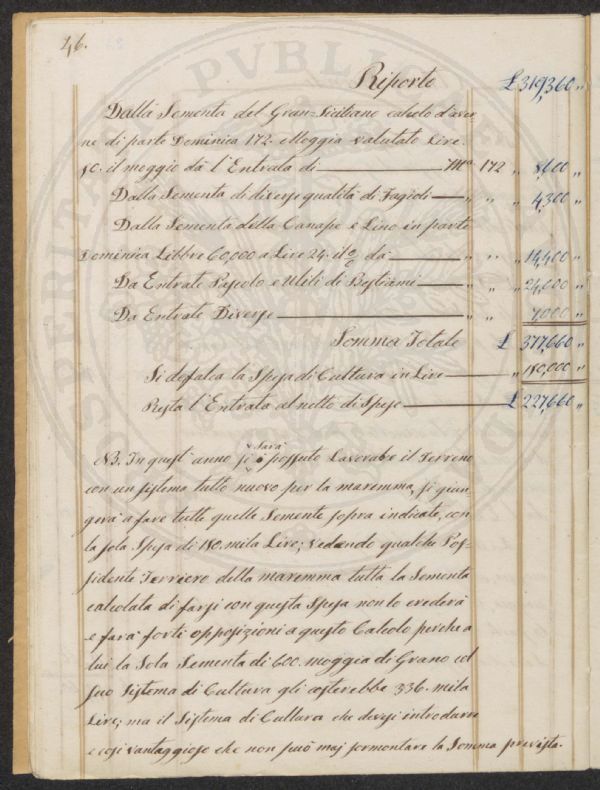 46.
PVBLIC
SPERITAT
Riporto £ 319,360 "
Dalla Sementa del Gran-Siciliano calcolo d'aver
ne di parte Dominica 172. Moggia valutato Lire.
50. il moggio dà l'Entrata di — Ma. 172 " 8600 "
Dalla Sementa di diverse qualità di Fagioli — " " " 4,300 "
Dalla Sementa della Canape e Lino in parte
Dominica Libbre 60,000 a Lire 24. il % dà — " " " 14,400 "
Da Entrate Pascolo e Utili di Bestiami — " " " 24,000 "
Da Entrate Diverse — " 7,000 "
Somma Totale £ 377,660 "
Si defalca la Spesa di Cultura in Lire — " 150,000 "
Resta l'Entrata al netto di Spese — £ 227,660 "
NB. In quest'anno si sarà possuto Lavorare il Terreno
con un sistema tutto nuovo per la maremma, si giun
gerà a fare tutte quelle Semente sopra indicate, con
la sola Spesa di 150. mila Lire; vedendo qualche Pos-
sidente Terriero della maremma tutta la Sementa
calcolata di farsi con questa Spesa non lo crederà
e farà forti opposizioni a questo Calcolo perche a
lui la Sola Sementa di 600. moggia di Grano col
suo Sistema di Cultura gli costerebbe 336. mila
Lire; ma il Sistema di Cultura che devesi introdurre
e così vantaggioso che non può mai sormontare la Somma prevista.